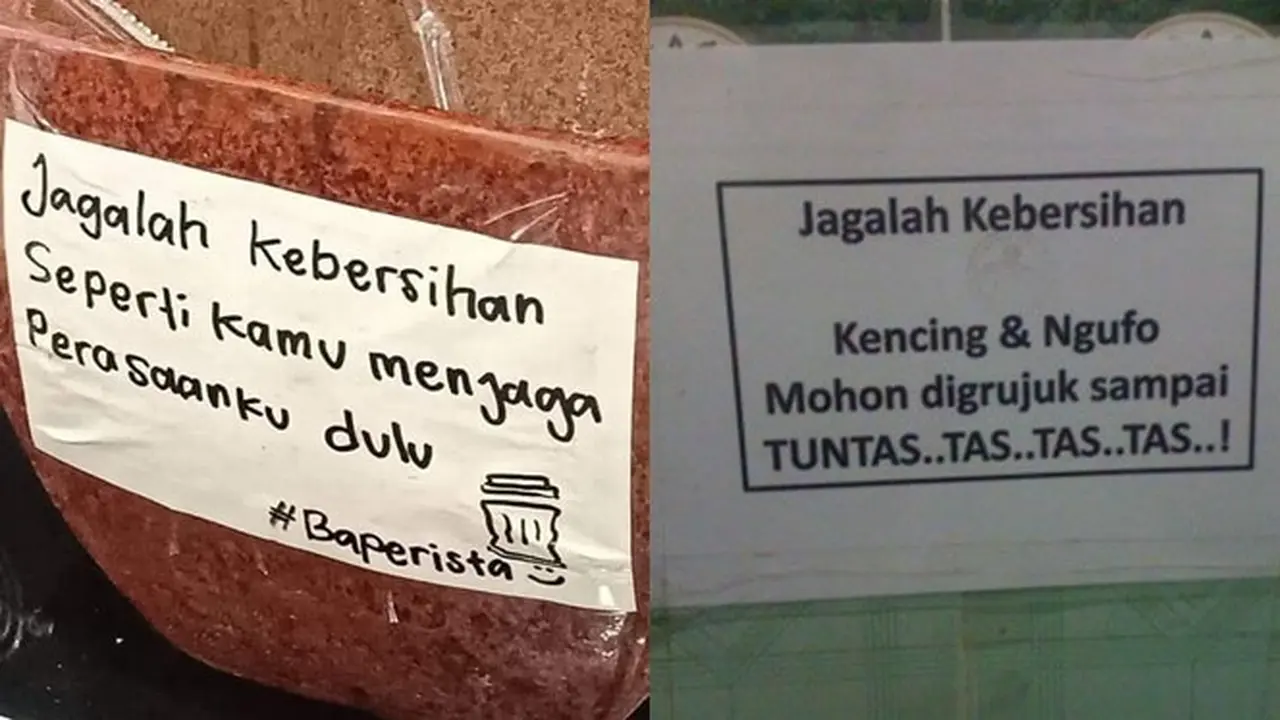 Jagalah kebersihan
Seperti kamu menjaga
Perasaanku dulu
#Baperista
Jagalah Kebersihan
Kencing & Ngufo
Mohon digrujuk sampai
TUNTAS..TAS..TAS..TAS..!